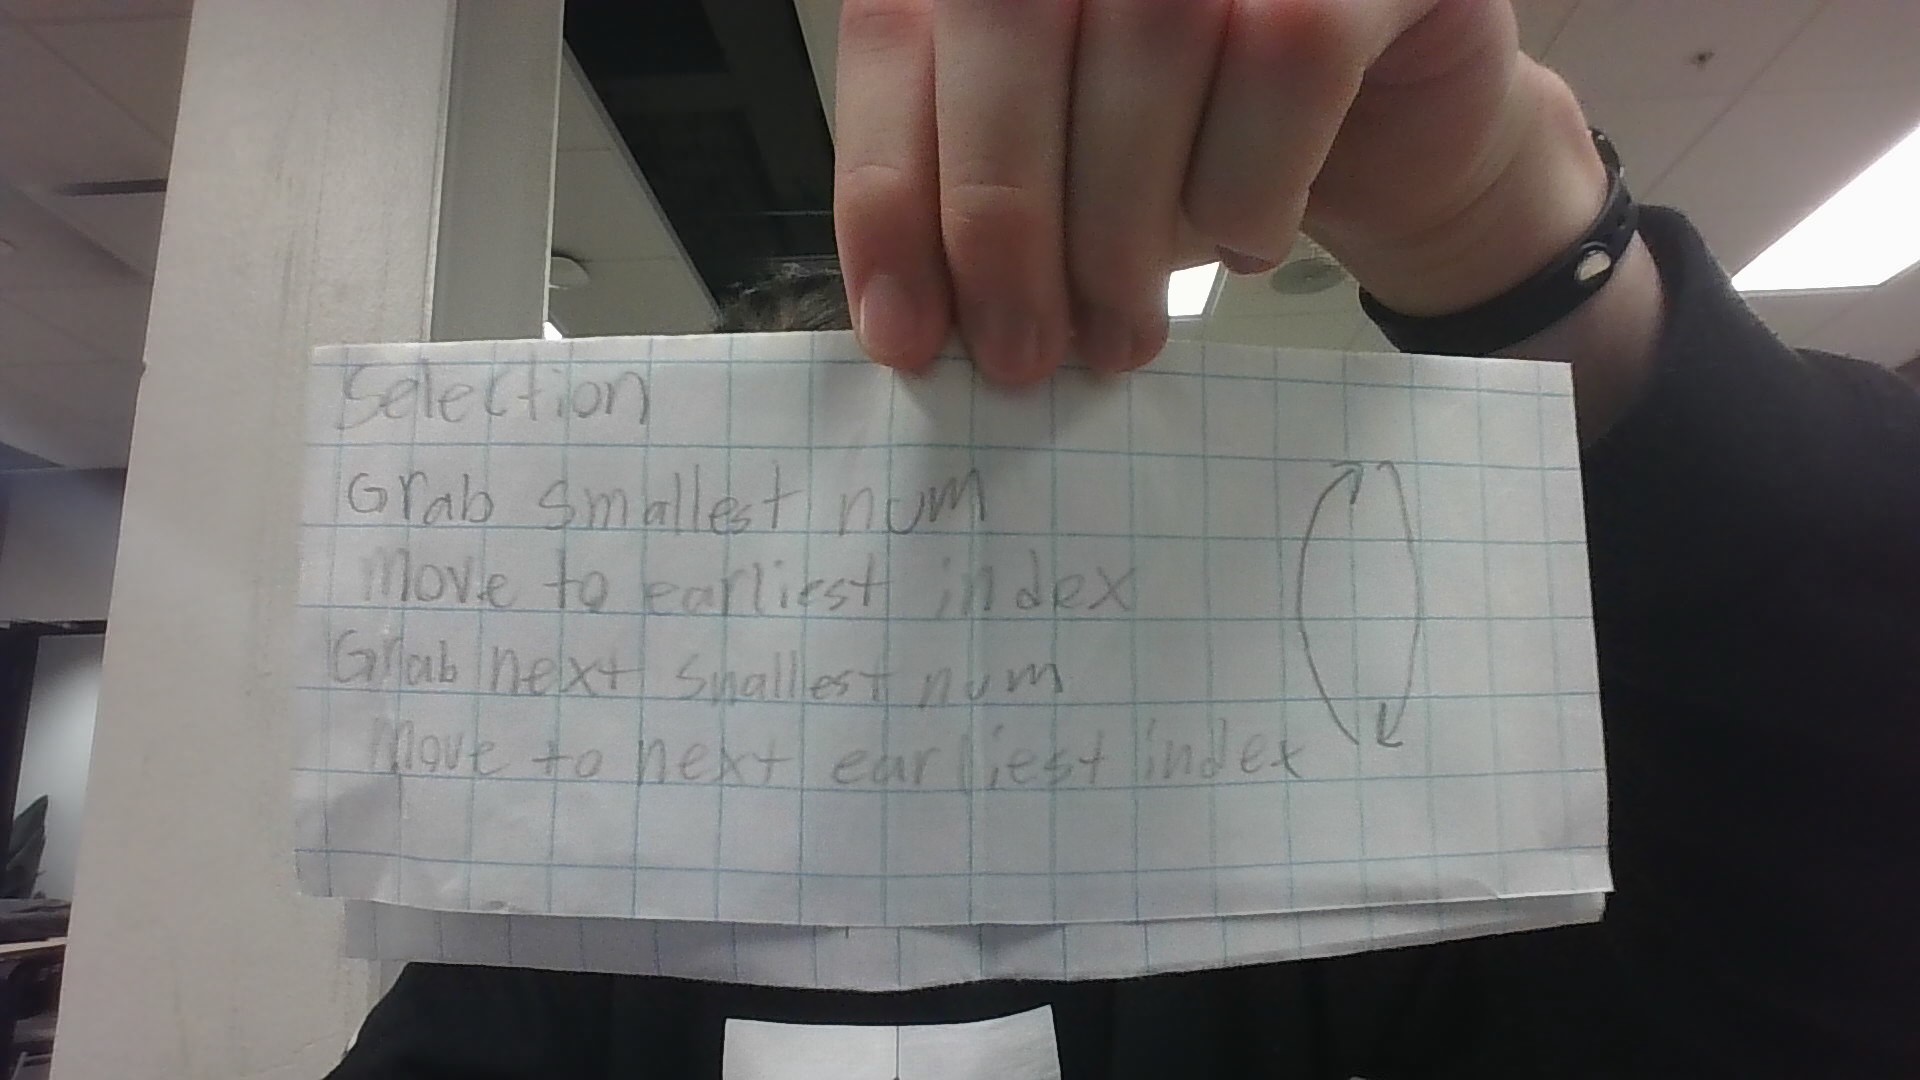 Selection
Grab smallest num
move to earliest index
Grab next smallest num
move to next earliest index